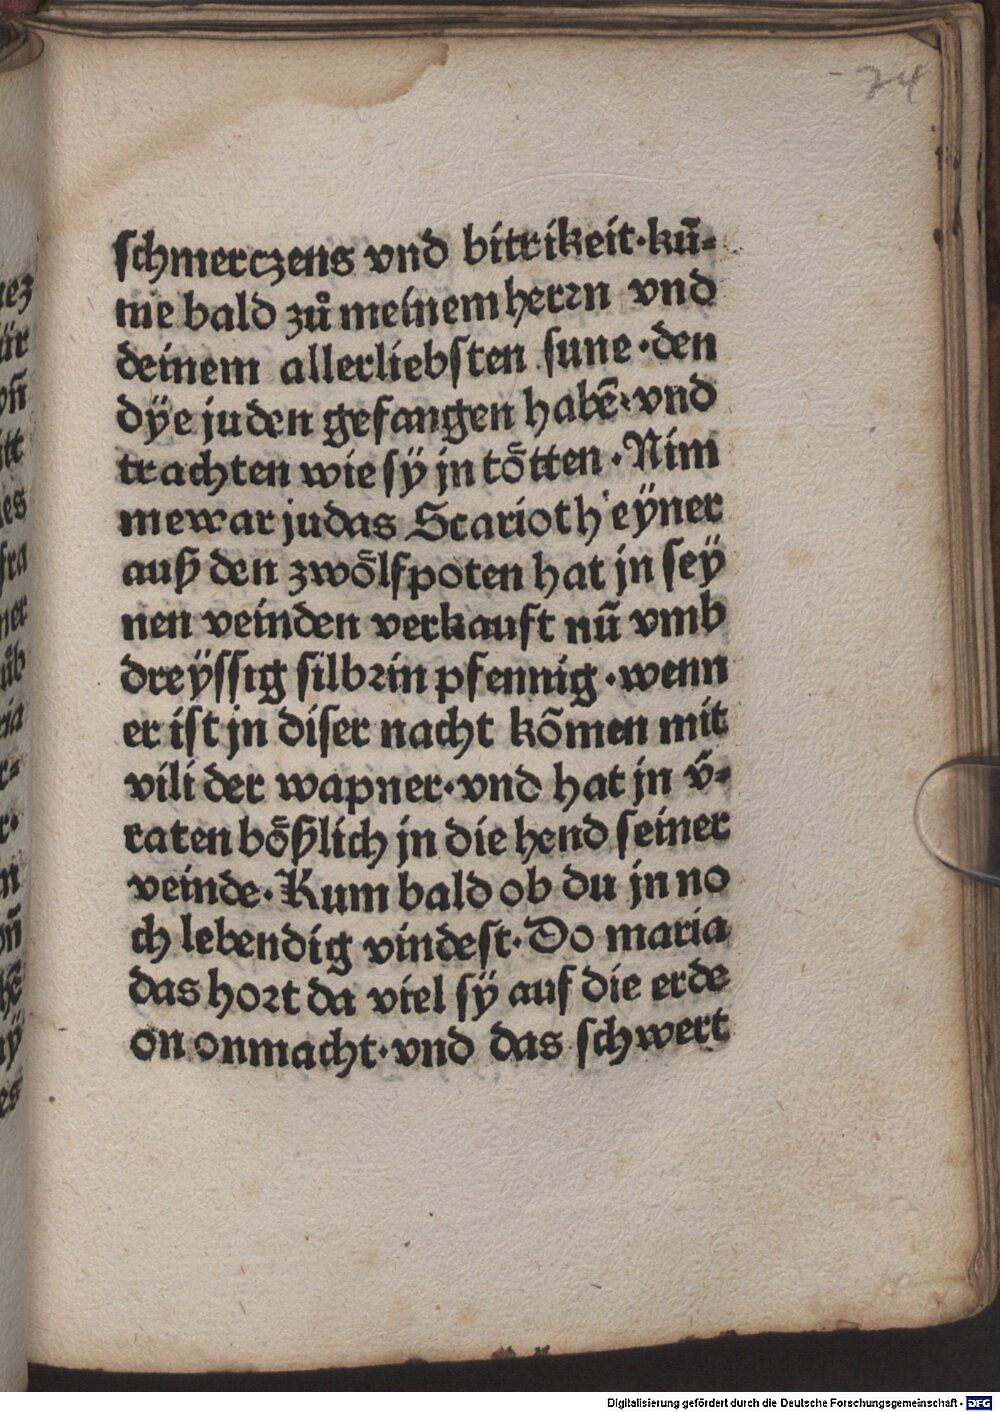 24
schmerczens vnd bitrikeit·kū-
me bald zů meinem herꝛn vnd
deinem allerliebsten sune·den
dÿe juden gefangen habē·vnd
trachten wie sÿ jn tötten·Nim
mewar judas Scarioth eÿner
auß den zwölfpoten hat jn seÿ
nen veinden verkauft nū vmb
dreÿssig silbꝛin pfennig·wenn
er ist jn diser nacht kōmen mit
vili der wapner·vnd hat jn v̄-
raten bößlich in die hend seiner
veinde·Kum bald ob du jn no
ch lebendig vindest·Do maria
das hoꝛt da viel sÿ auf die erde
on onmacht·vnd das schwert
Digitalisierung gefördert durch die Deutsche Forschungsgemeinschaft - DFG